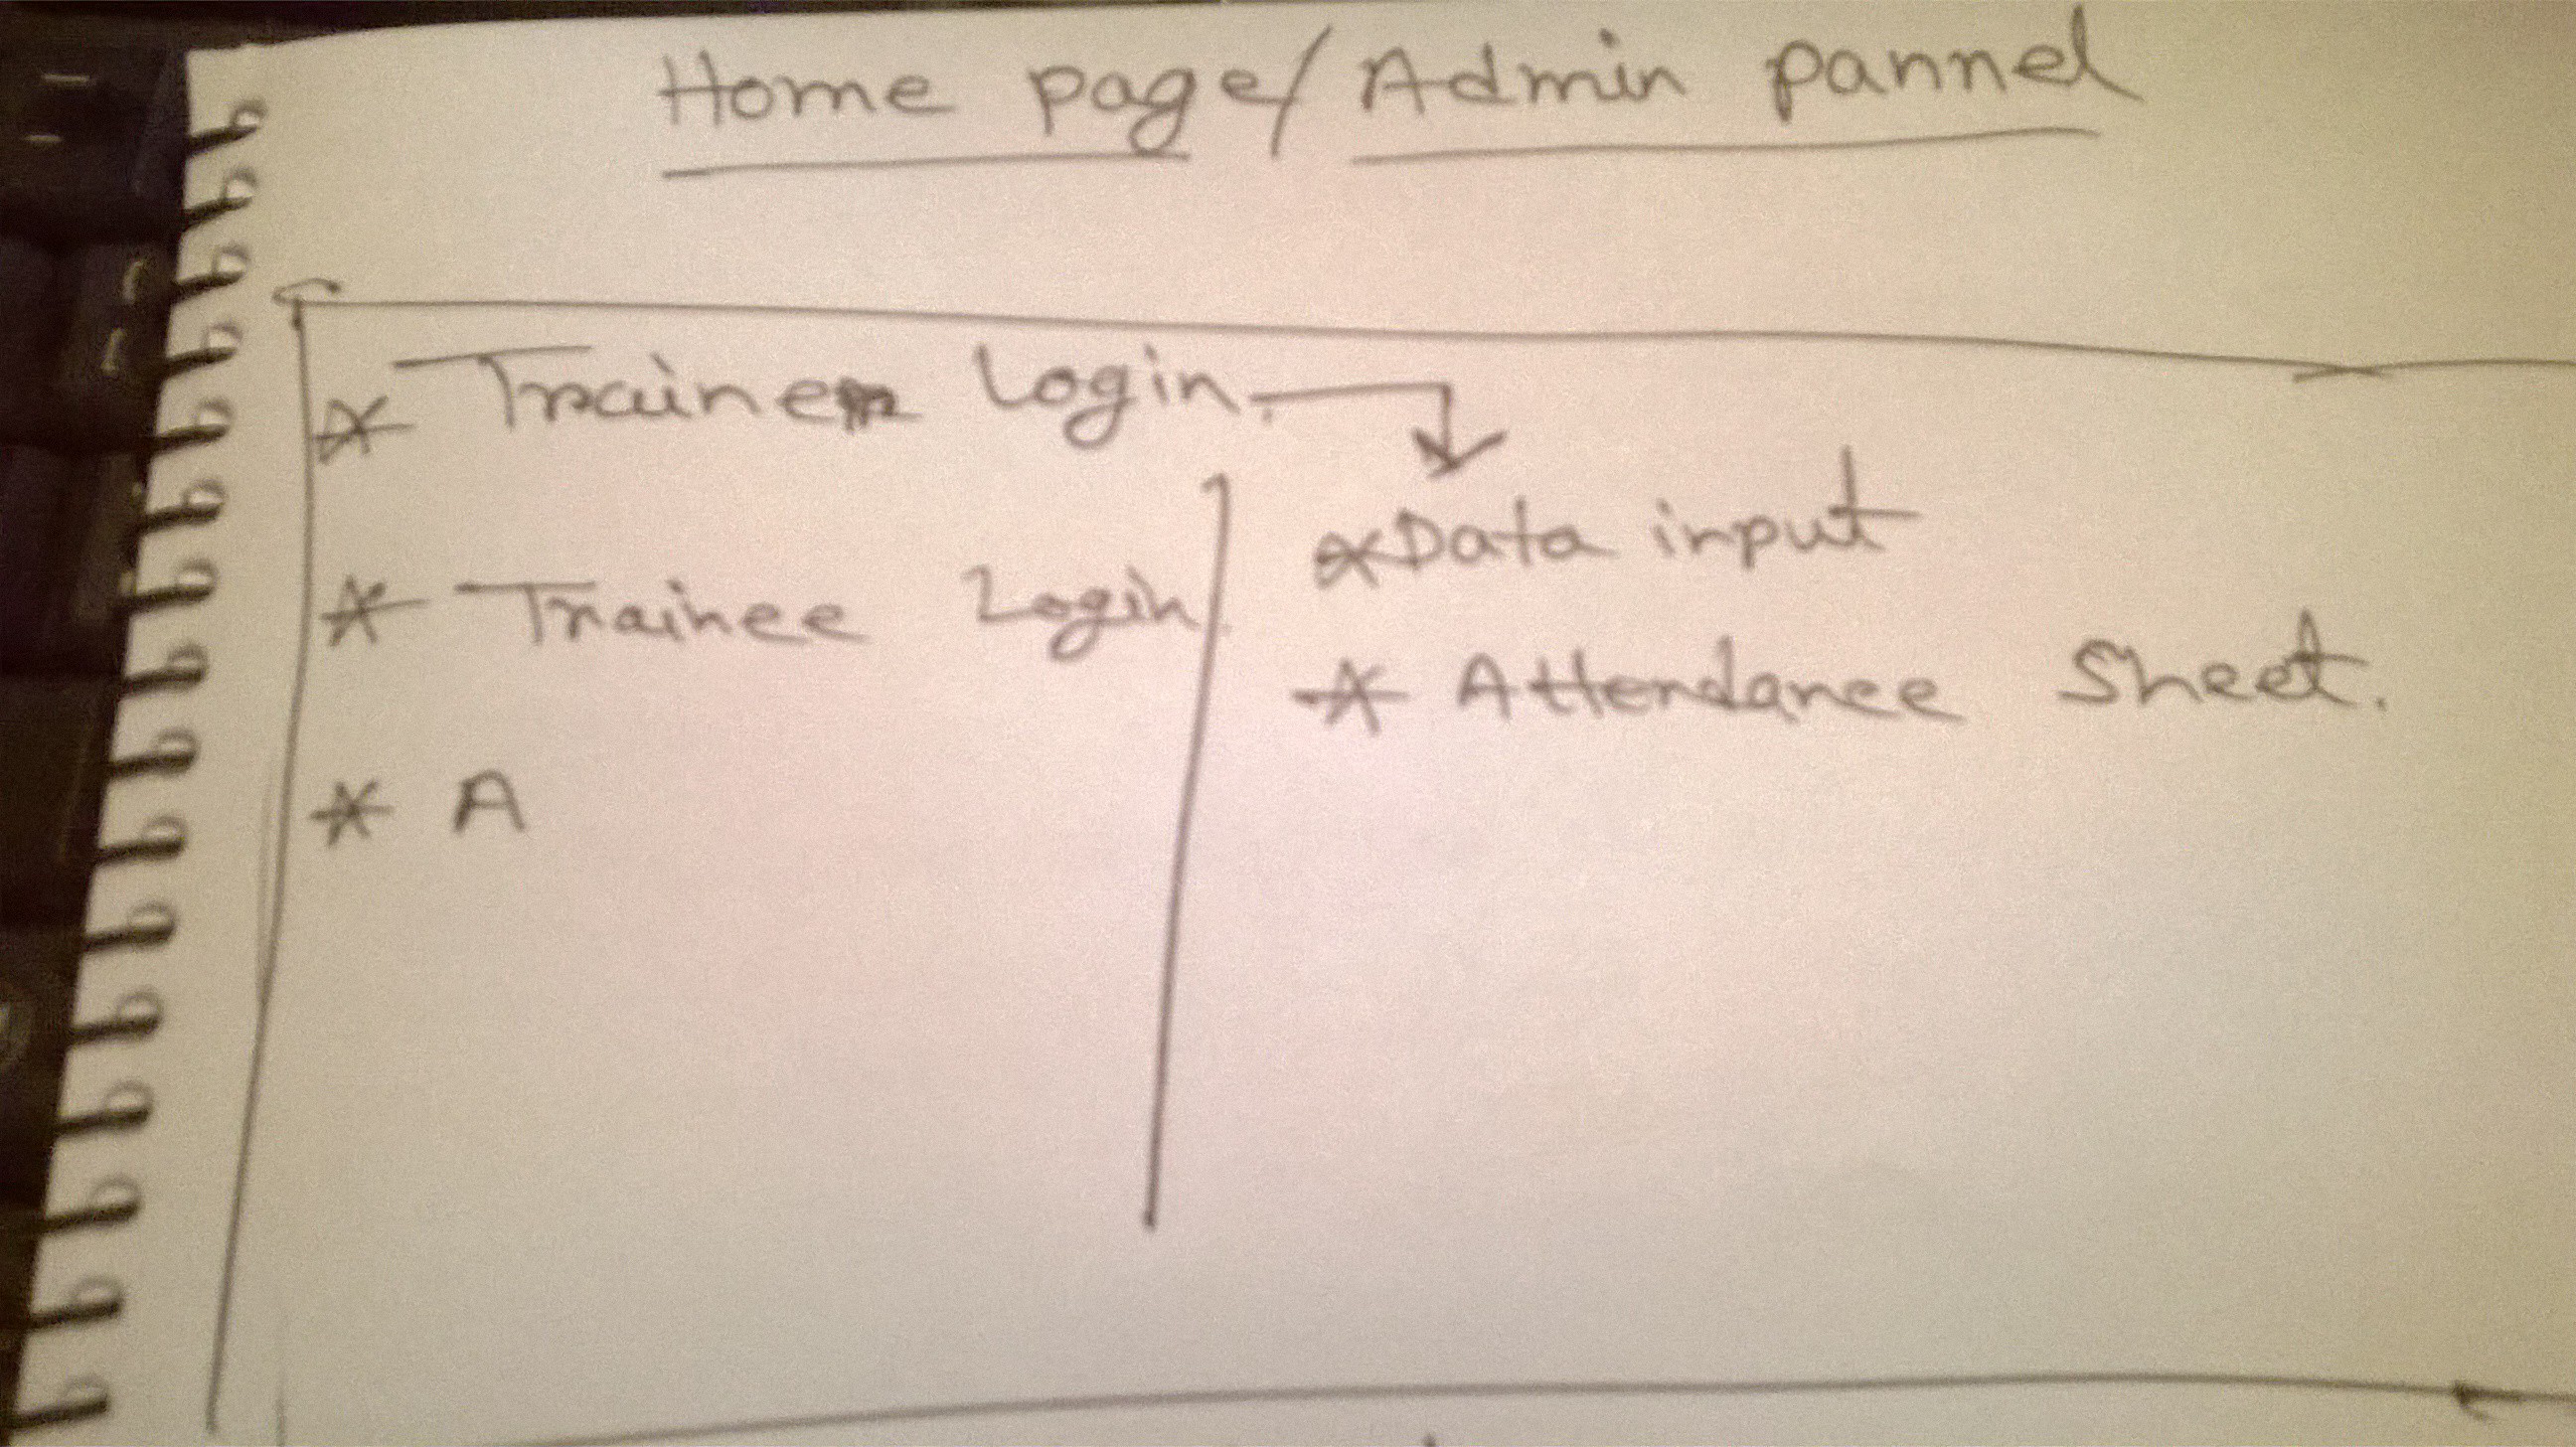 Home page/Admin pannel
* Trainer Login
* Trainee Login
* A
* Data input
* Attendance Sheet.